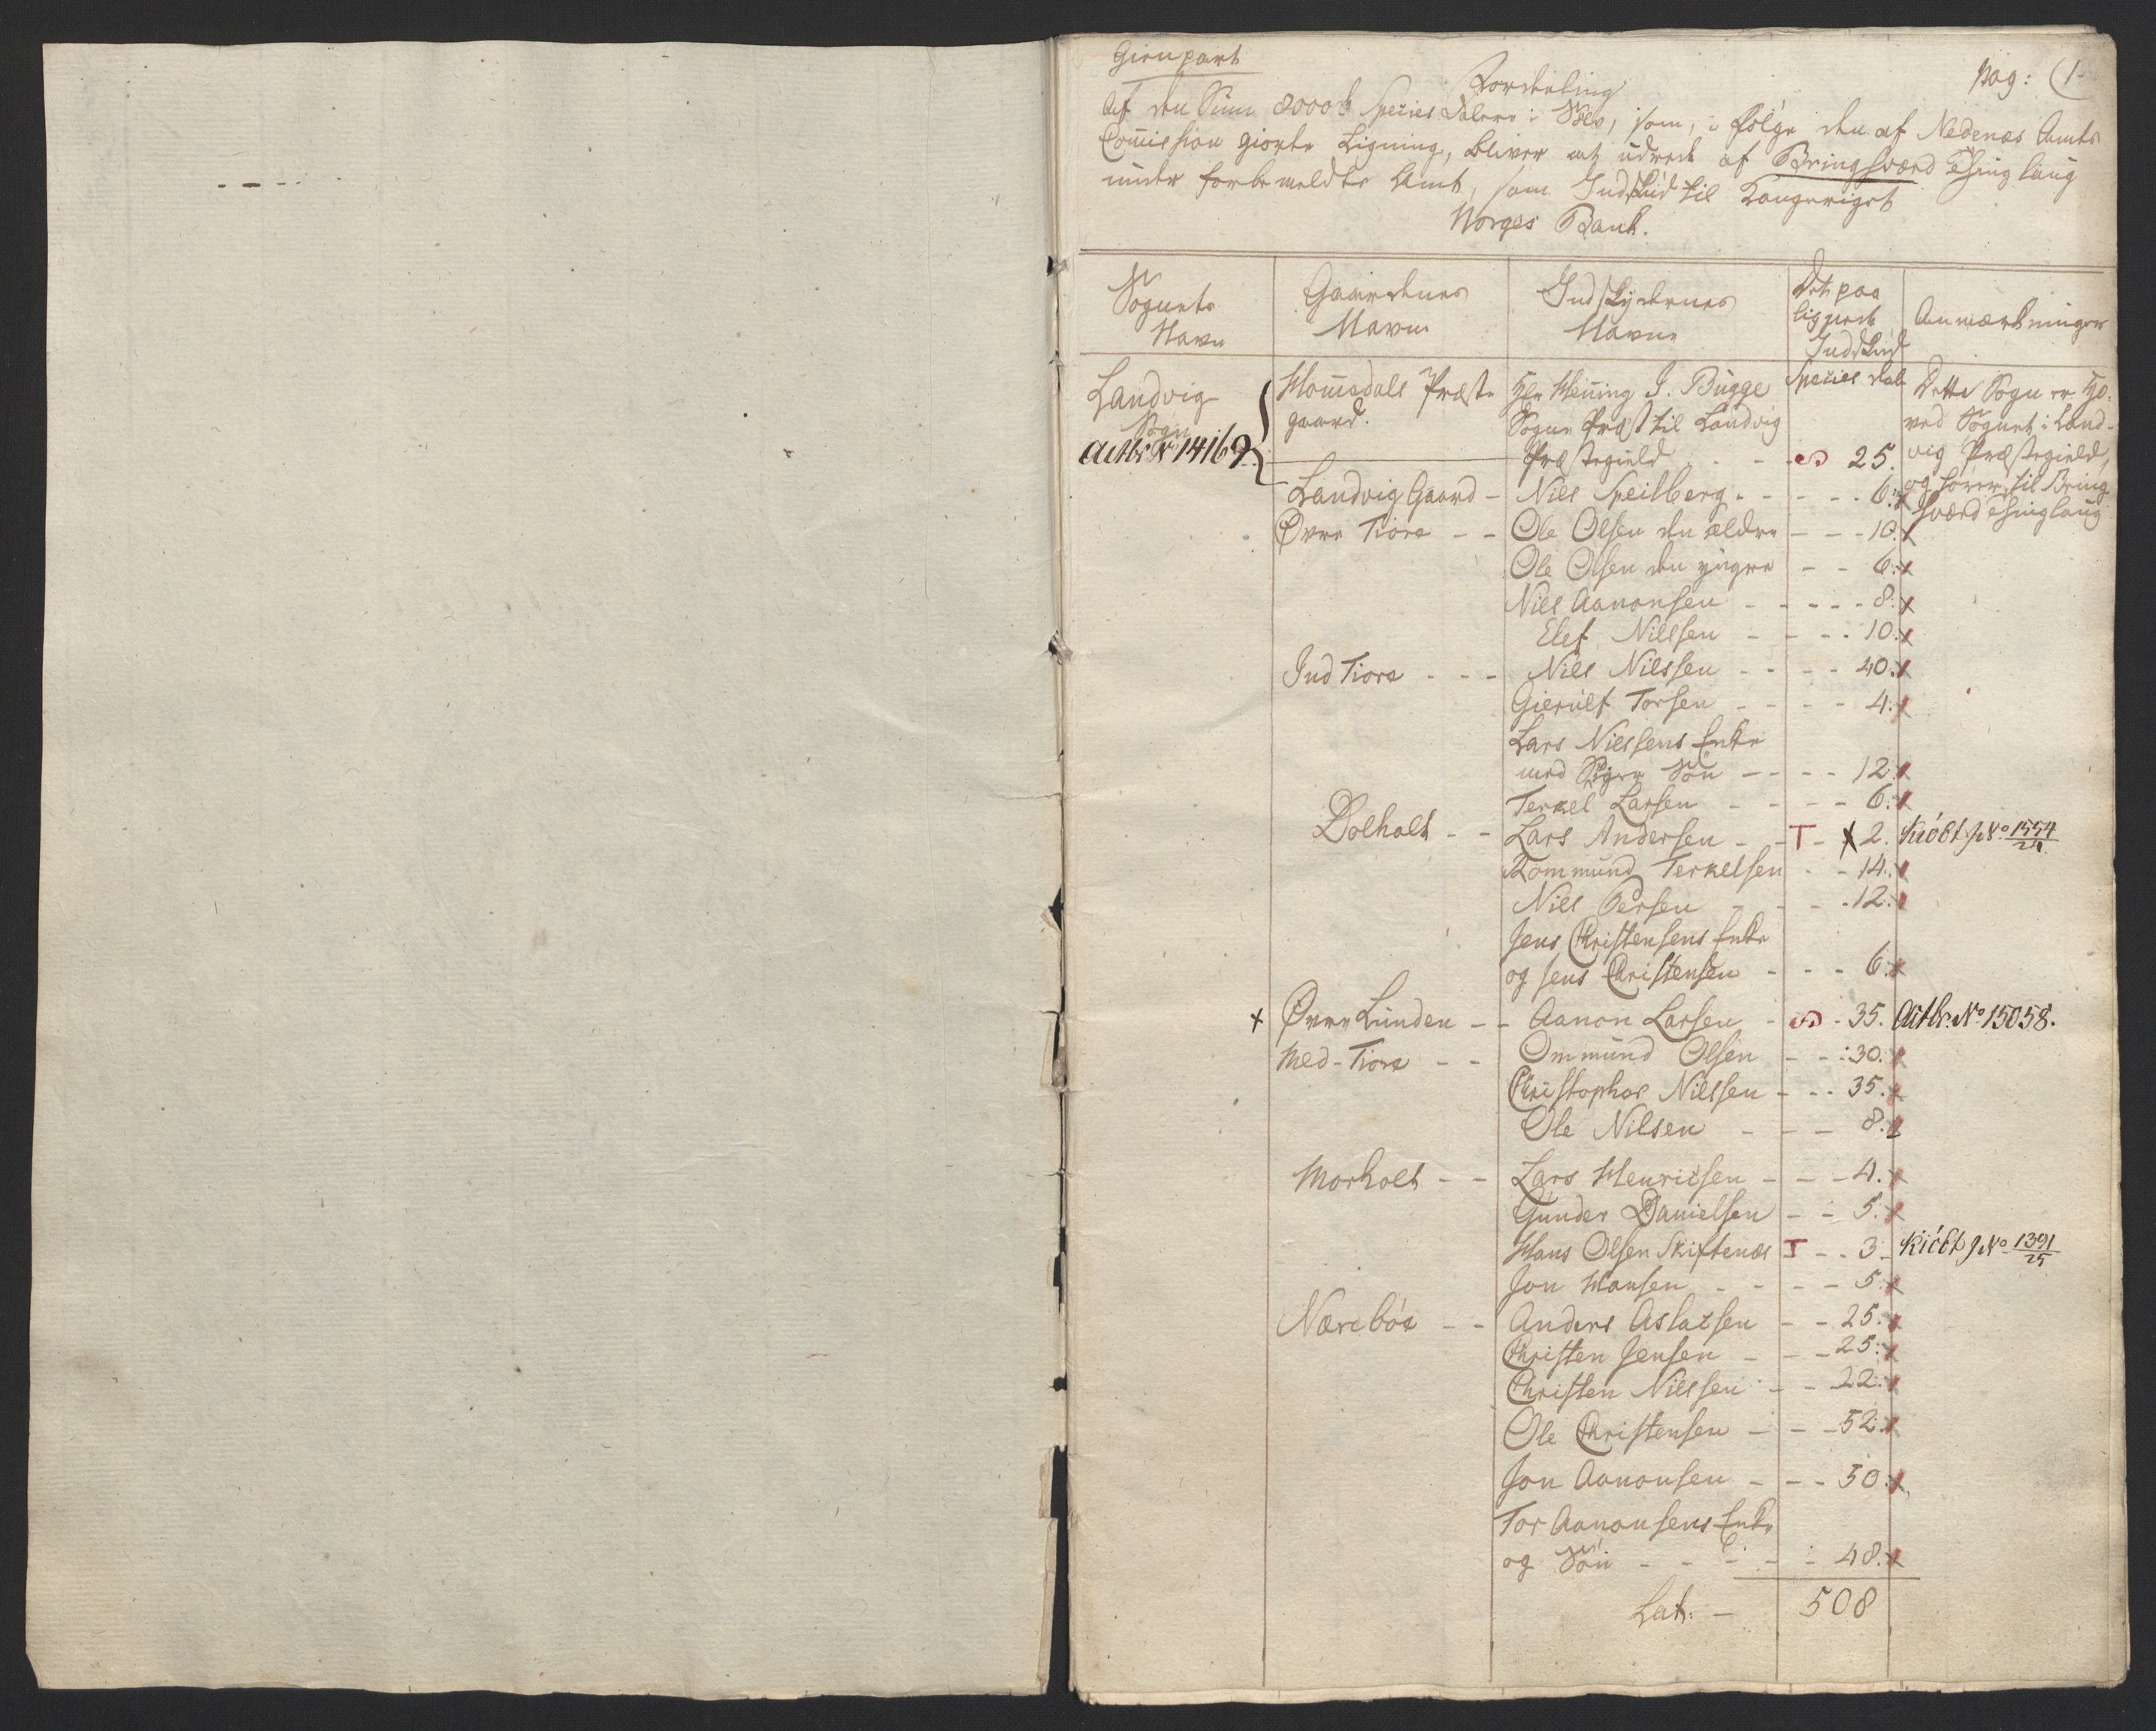 Gienpart
Pag: (1-
Fordeeling
Af den Sum 8000 Species Daler i Sølv, som, i følge den af Nedenæs Amts
Commission giorte Ligning, bliver at udrede af Bringsværd Thinglaug
under forbemeldte Amt, som Indskud til Kongeriget
Norges Bank.
Sognets Navn | Gaardenes Navne | Indskydernes Navne | Det paa lignede Indskud | Anmærkninger
Species Dal
Landvig Sogn
Actbr. N 14169
Hommedals Præste gaard. | Hr Henning J. Bugge
Sogne Præst til Landvig
Præstegield - - 25.
Dette Sogn er Ho-
ved Sognet i Land-
vig Præstegield,
og hører til Bring
sværd Thinglaug
Landvig Gaard - Nils Speilberg - - 6.
Øvre Tiore - - Ole Olsen den ældre - - 10.
Ole Olsen den yngre - - 6.
Nils Aanonsen - - 8.
Elef Nilssen - - 10.
Ind Tiore - - Nils Nilssen - - 40.
Gierulf Torsen - - 4.
Lars Nilssens Enke
med Søn - - 12
Terkel Larsen - - 6.
Dolholt - - Lars Andersen - T - X 2. Kiöbt J N° 1554/24
Rommund Terkelsen - - 14.
Nils Persen - - 12.
Jens Christensens Enke
og Jens Christensen - - 6.
x Øvre Lunden - - Aanon Larsen - - 35. Actbr. N° 15058.
Med-Tiore - - Ommund Olsen - - 30.
Christopher Nilssen - - 35.
Ole Nilsen - - 8.
Morholt - - Lars Henricsen - - 4.
Gunder Danielsen - - 5.
Hans Olsen Skiftenes T - - 3 Kiöbt J N° 1391/25
Jon Hansen - - 5.
Nærebøe - - Anders Aslacsen - - 25.
Christen Jensen - - 25.
Christen Nilssen - - 22.
Ole Christensen - - 52.
Jon Aanonsen - - 50.
Tor Aanonsens Enke
og Søn - - 48.
Lat: - 508